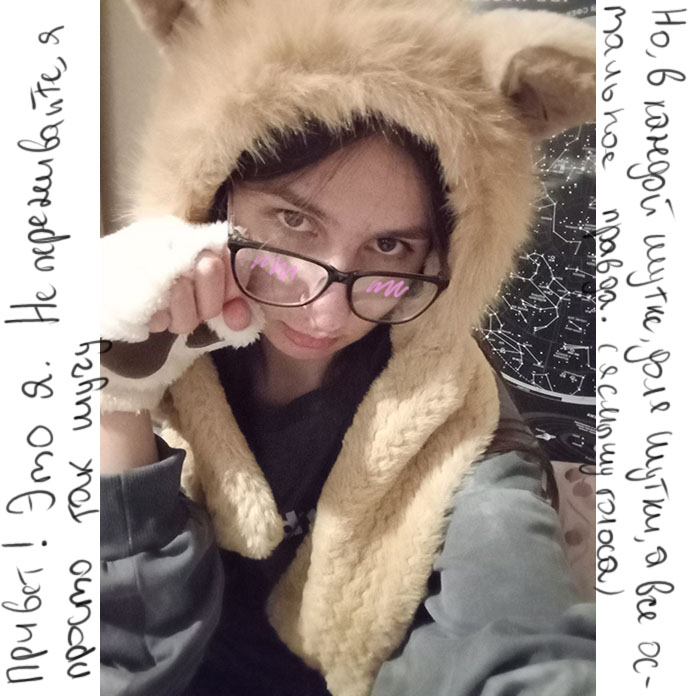 Привет! Это я. Не переживайте, я
просто так шучу
Но, в каждой шутке, доля шутки, а все ос-
тальное правда. (я слышу голоса)